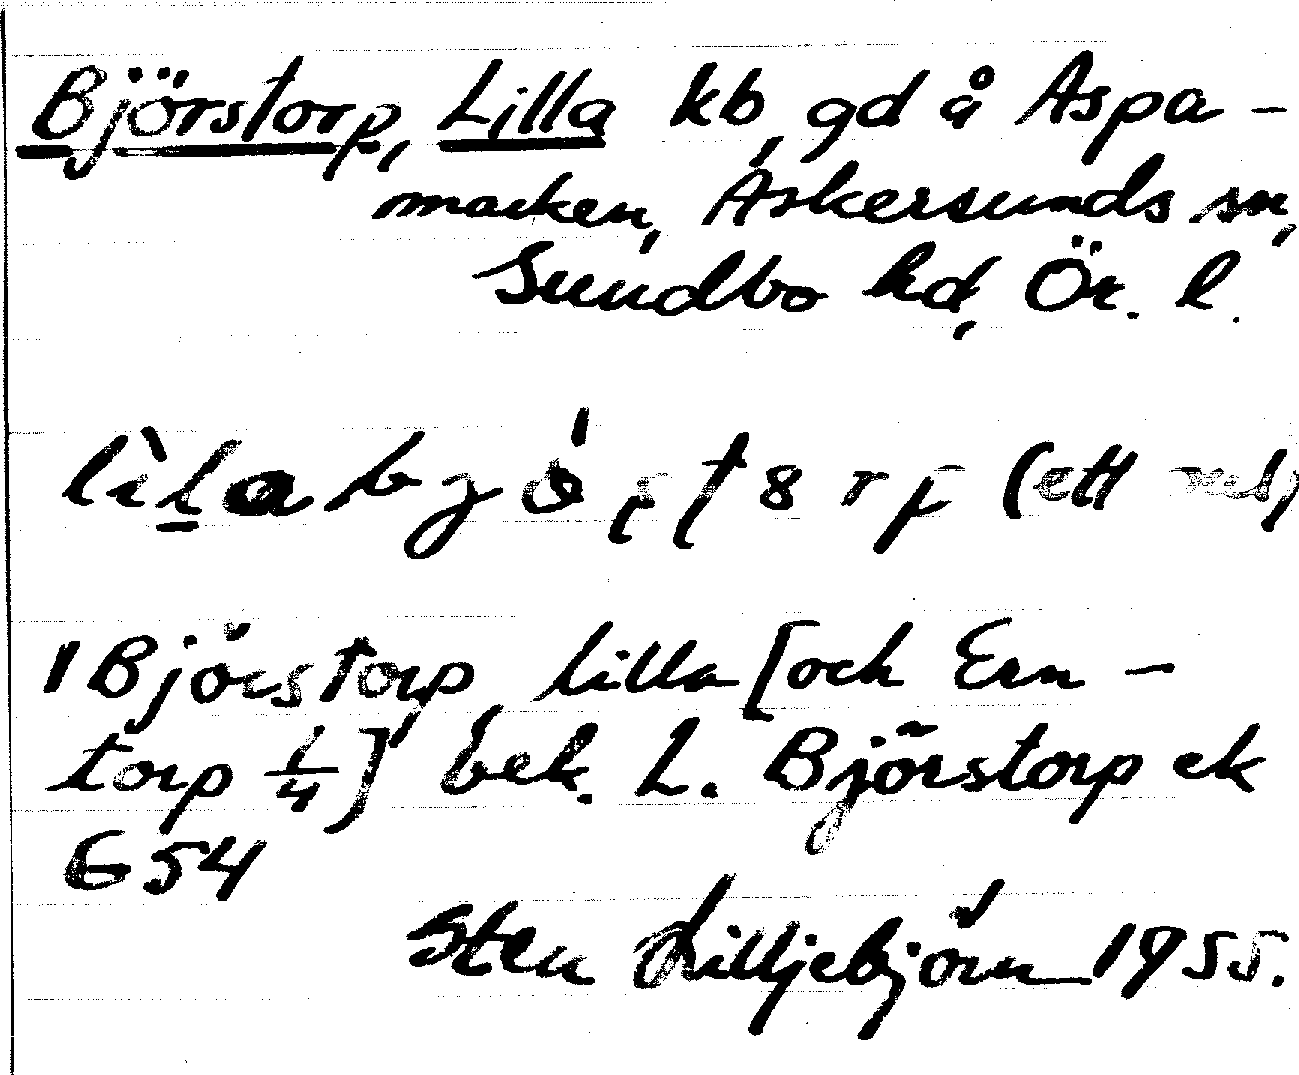 Björstorp, Lilla kb, gd å Aspa-
marken, Askersunds sn,
Sundbo hd, Ör. l.
(ett
1 Björstorp lilla [och Ern-
torp 1/4] bek. L. Björstorp ek
654
Sten Lilljebjörn 1955.